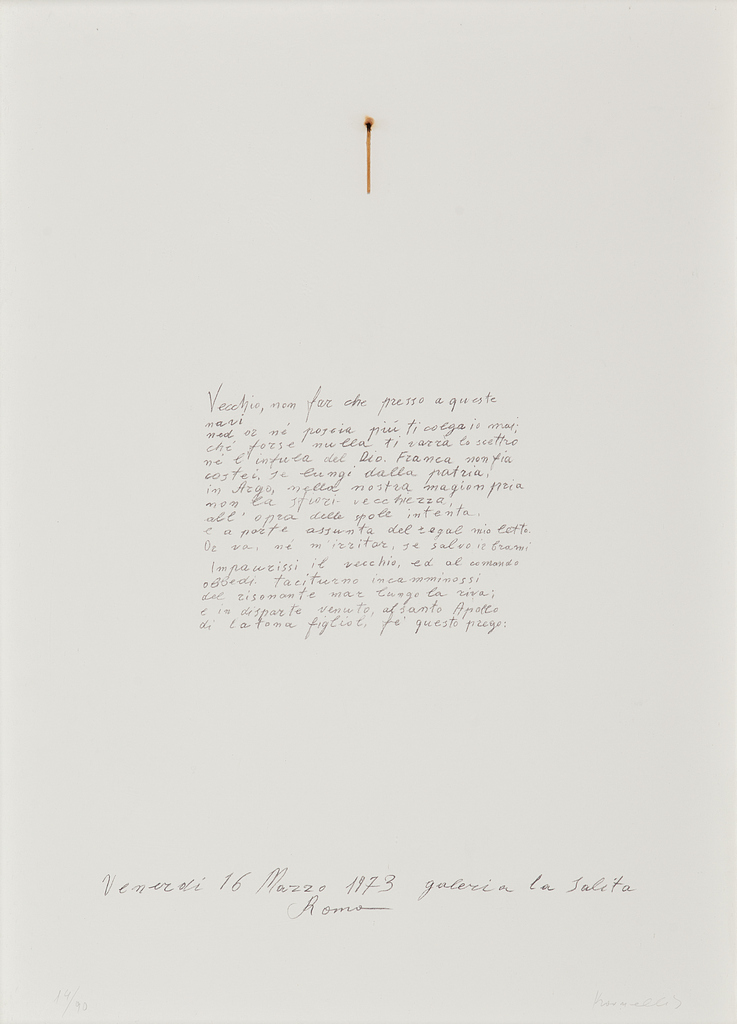 Vecchio, non far che presso a queste
navi
ned or né poscia più ti colga io mai;
ché forse nulla ti varrà lo scettro
né l'infula del Dio. Franca non fia
costei, se lungi dalla patria,
in Argo, nella nostra magion pria
non la sfiori vecchiezza,
all'opra delle spole intenta,
e a parte assunta del regal mio letto.
Or va, né m'irritar, se salvo ir brami
Impaurissi il vecchio, ed al comando
obbedì taciturno incamminossi
del risonante mar lungo la riva;
e in disparte venuto, al santo Apollo
di Latona figliol, fe' questo prego:
Venerdi 16 Marzo 1973 galeria la Salita
Roma
14/90